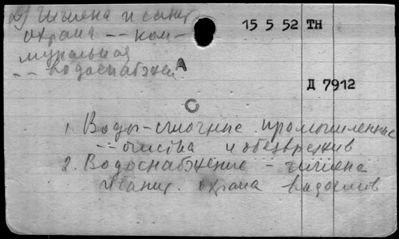 2) Гигиена и санит
охрана -- ком-
мунальная
-- водоснабжен
А
15 5 52 ТН
Д 7912
1. Воды - сточные промышленные
-- очистка и обезврежив
2. Водоснабжение - гигиена
санит. охрана водоемов